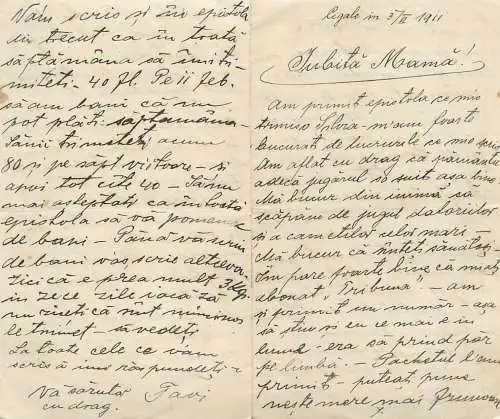 3/II 1911
Iubită Mamă!
Am primit epistola ce mio
trimiso Silvia - m'am foarte
bucurat de lucrurile ce mio scris
Am aflat cu drag că pământu
adecă jugărul să suit așa bine.
Mă bucur din inimă, ca
scăpăm de jugul datoriilor
și a cametilor celor mari -
Mă bucur că sînteți sănătoși
Îmi pare foarte bine că mați
abonat "Tribuna" - am
și primit un număr - așa
să știu și eu ce mai e în
lume - era să prind păr
pe limbă. - Pachetul l'am
primit - puteați pune
neste mere mai frumoase
V'am scris și în epistola
din trecut ca în toată
săptămâna să îmi tri-
miteti - 40 fl. Pe 11 feb.
să am bani că nu
pot plăti săptămâna
Să-mi trimeteți acum
80 și pe săpt viitoare - și
apoi tot câte 40 - Să nu
mai așteptați ca în toată
epistola să vă pomenesc
de bani - Până vă scriu
de bani vaș scrie altceva.
zică e prea mult 3 kg.
in zece zile iacă ză
nu ziceți că nut nimic nos
le trimet - a vedeți
La toate cele ce v'am
scris a-mi răspundeți -
Vă sărută
cu drag. Tavi